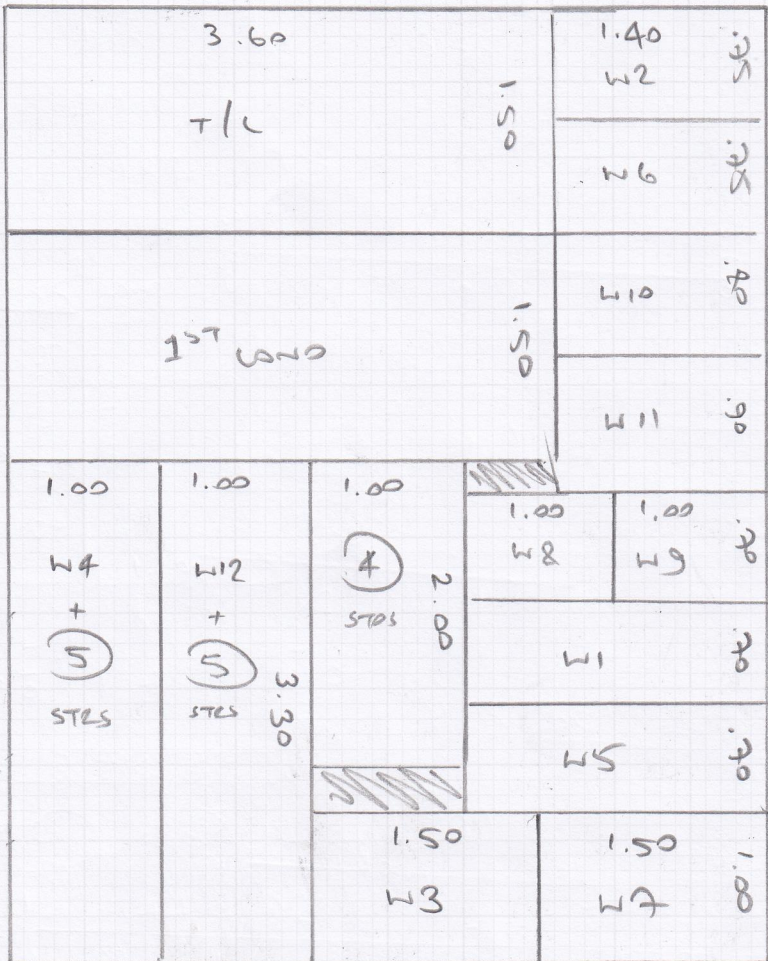 3.60
T/L
1.50
1.40
W2
.75
W6
.75
1ST LAND
1.50
W10
.90
W11
.90
1.00
W4
+
5
STRS
1.00
W12
+
5
STRS
3.30
1.00
4
STRS
2.00
1.00
W8
1.00
W9
.70
W1
.70
W5
.70
1.50
W3
1.50
W7
1.00